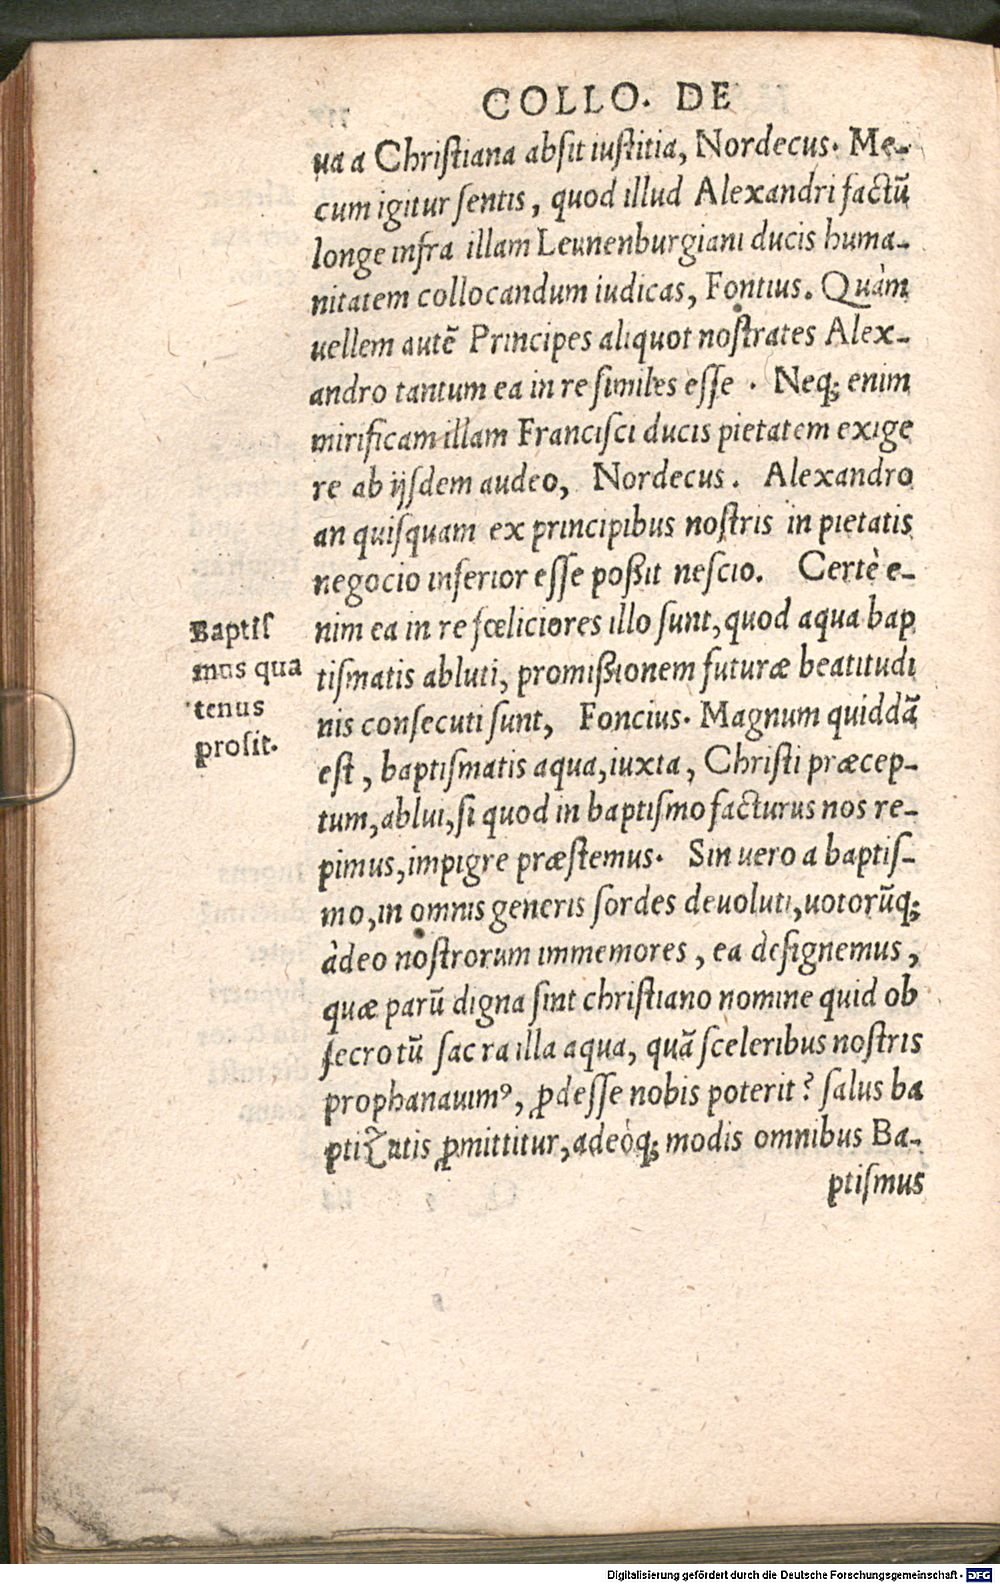 COLLO. DE
ua a Chriſtiana abſit iuſtitia, Nordecus. Me-
cum igitur ſentis, quod illud Alexandri factũ
longe infra illam Leunenburgiani ducis huma-
nitatem collocandum iudicas, Fontius. Quàm
uellem autẽ Principes aliquot noſtrates Alex-
andro tantum ea in re ſimiles eſſe . Neq; enim
mirificam illam Franciſci ducis pietatem exige
re ab ijſdem audeo, Nordecus. Alexandro
an quiſquam ex principibus noſtris in pietatis
negocio inferior eſſe poßit neſcio. Certè e-
nim ea in re fœliciores illo ſunt, quod aqua bap
tiſmatis abluti, promißionem futuræ beatitudi
nis conſecuti ſunt, Foncius. Magnum quiddã
eſt, baptiſmatis aqua, iuxta, Chriſti præcep-
tum, ablui, ſi quod in baptiſmo facturus nos re-
pimus, impigre præſtemus. Sin uero a baptiſ-
mo, in omnis generis ſordes deuoluti, uotorũq;
àdeo noſtrorum immemores, ea deſignemus,
quæ parũ digna ſint chriſtiano nomine quid ob
ſecro tũ sacra illa aqua, quã ſceleribus noſtris
prophanauimꝰ, ꝓdeſſe nobis poterit? ſalus ba
ptizatis ꝓmittitur, adeòq; modis omnibus Ba-
ptiſmus
Baptiſ
mus qua
tenus
proſit.
Digitalisierung gefördert durch die Deutsche Forschungsgemeinschaft - DFG